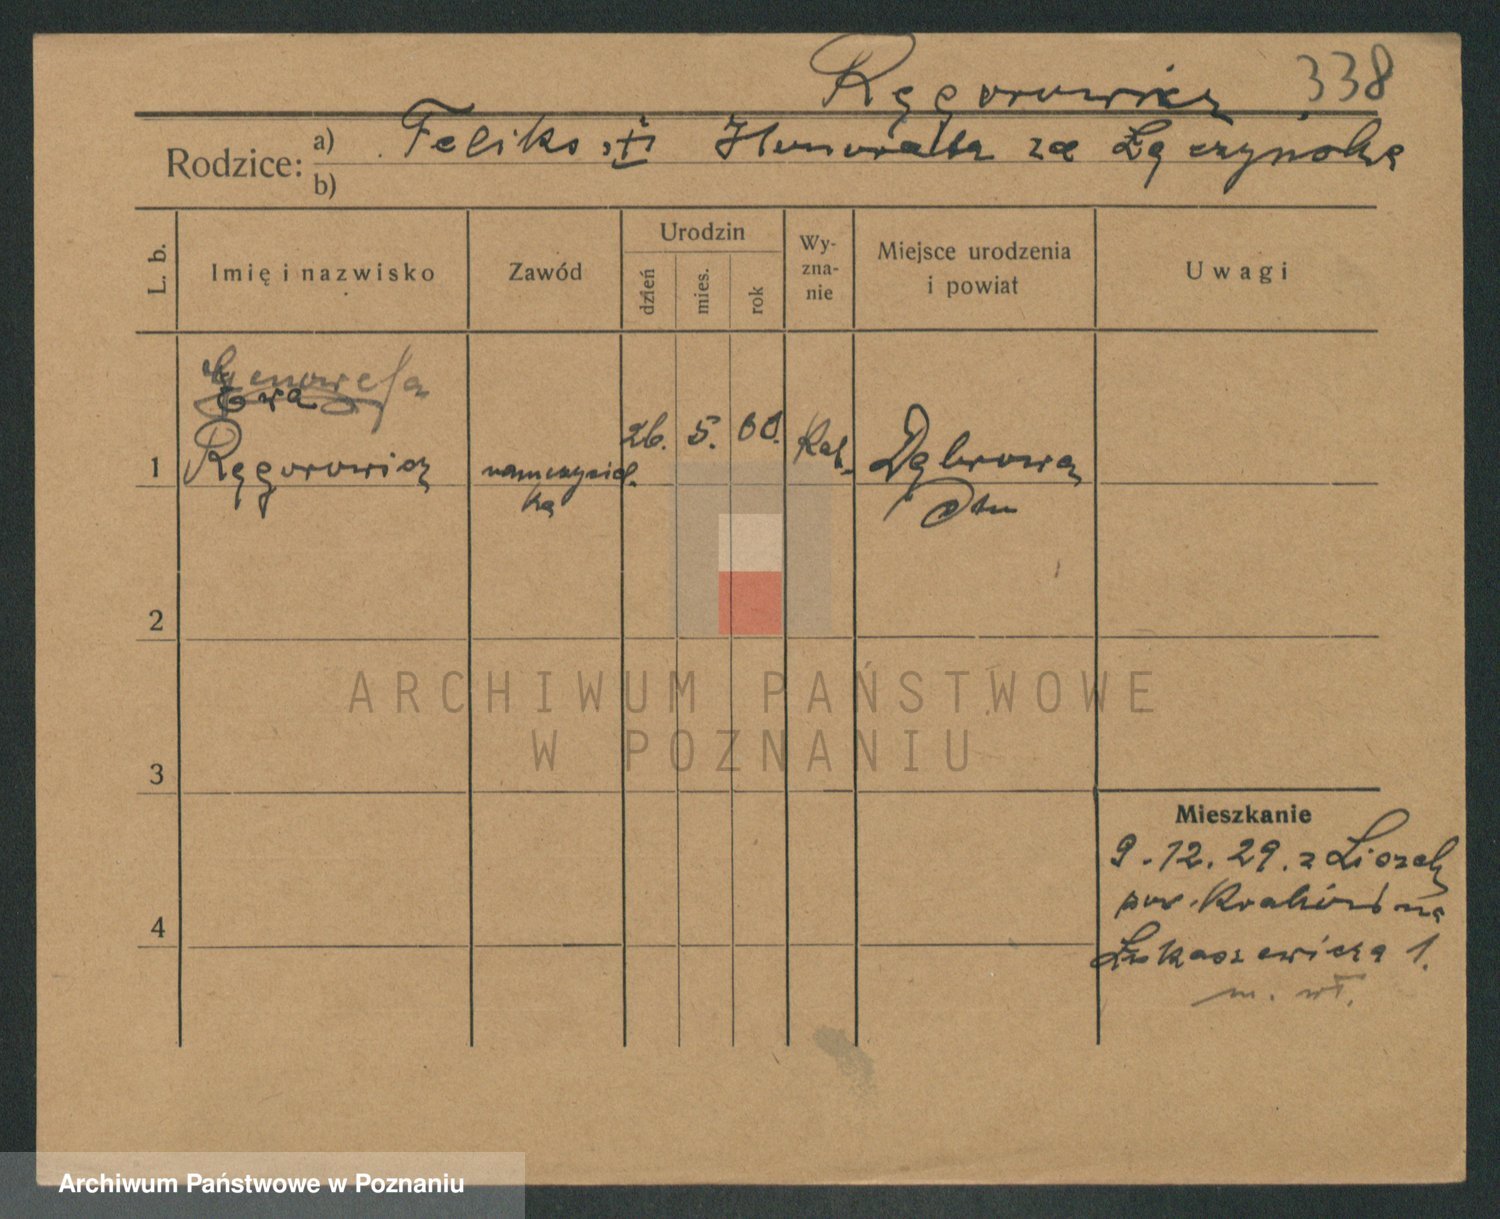 Ręgorowicz 338
Rodzice: a) Feliks i Honorata za Łączyńska
b)
L. b. Imię i nazwisko Zawód Urodzin dzień mies. rok Wy-zna-nie Miejsce urodzenia i powiat Uwagi
Genowefa
Ewa
1 Ręgorowicz nauczyciel. 26. 5. Kat. Dąbrowa
ka
2
3
4
Mieszkanie
9.12.29. z Liszek
pow. Kraków na
Łukaszewicza 1.
m. wł.
ARCHIWUM PAŃSTWOWE
W POZNANIU
Archiwum Państwowe w Poznaniu